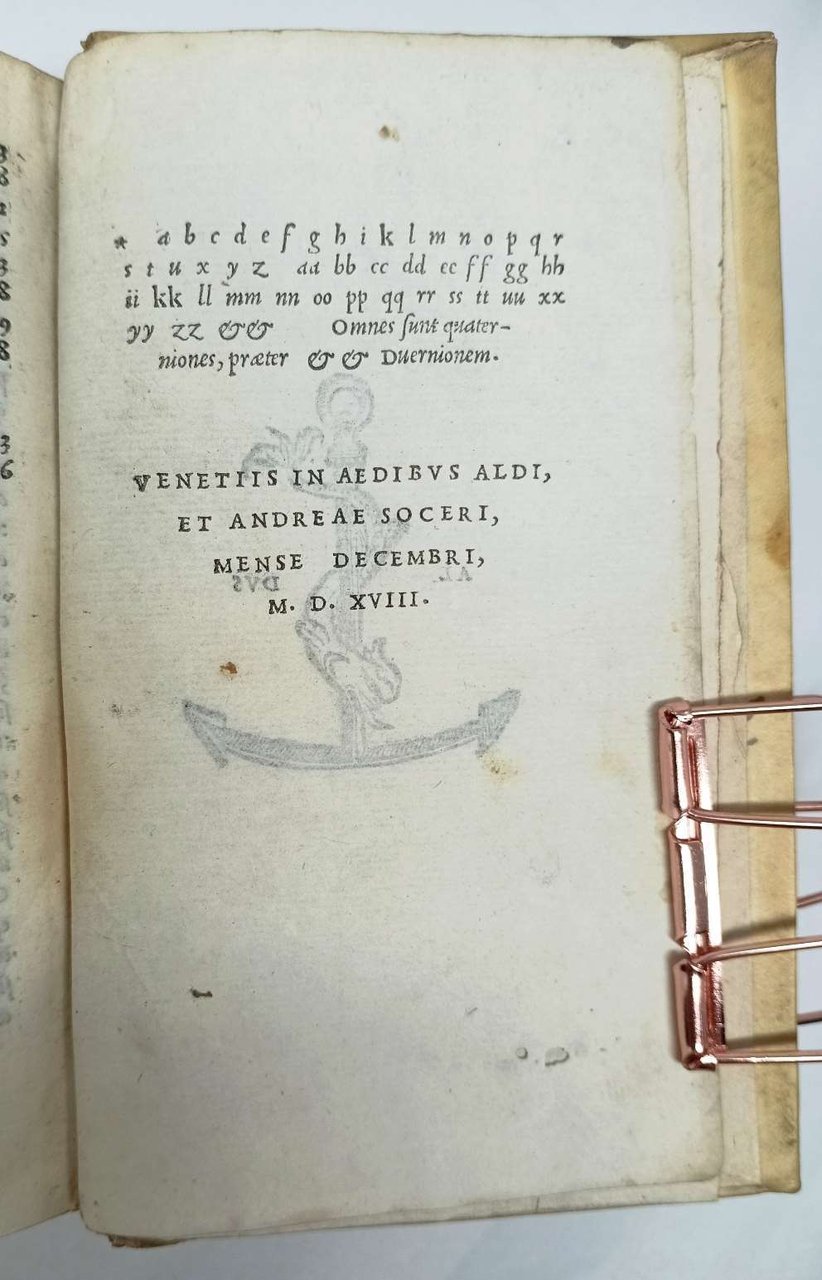 * a b c d e f g h i k l m n o p q r
s t u x y z aa bb cc dd ee ff gg hh
ii kk ll mm nn oo pp qq rr ss tt uu xx
yy zz & & Omnes ſunt quater-
niones, præter & & Duernionem.
VENETIIS IN AEDIBVS ALDI,
ET ANDREAE SOCERI,
MENSE DECEMBRI,
M. D. XVIII.
AL DVS
3
8
2
5
3
8
9
8
3
6